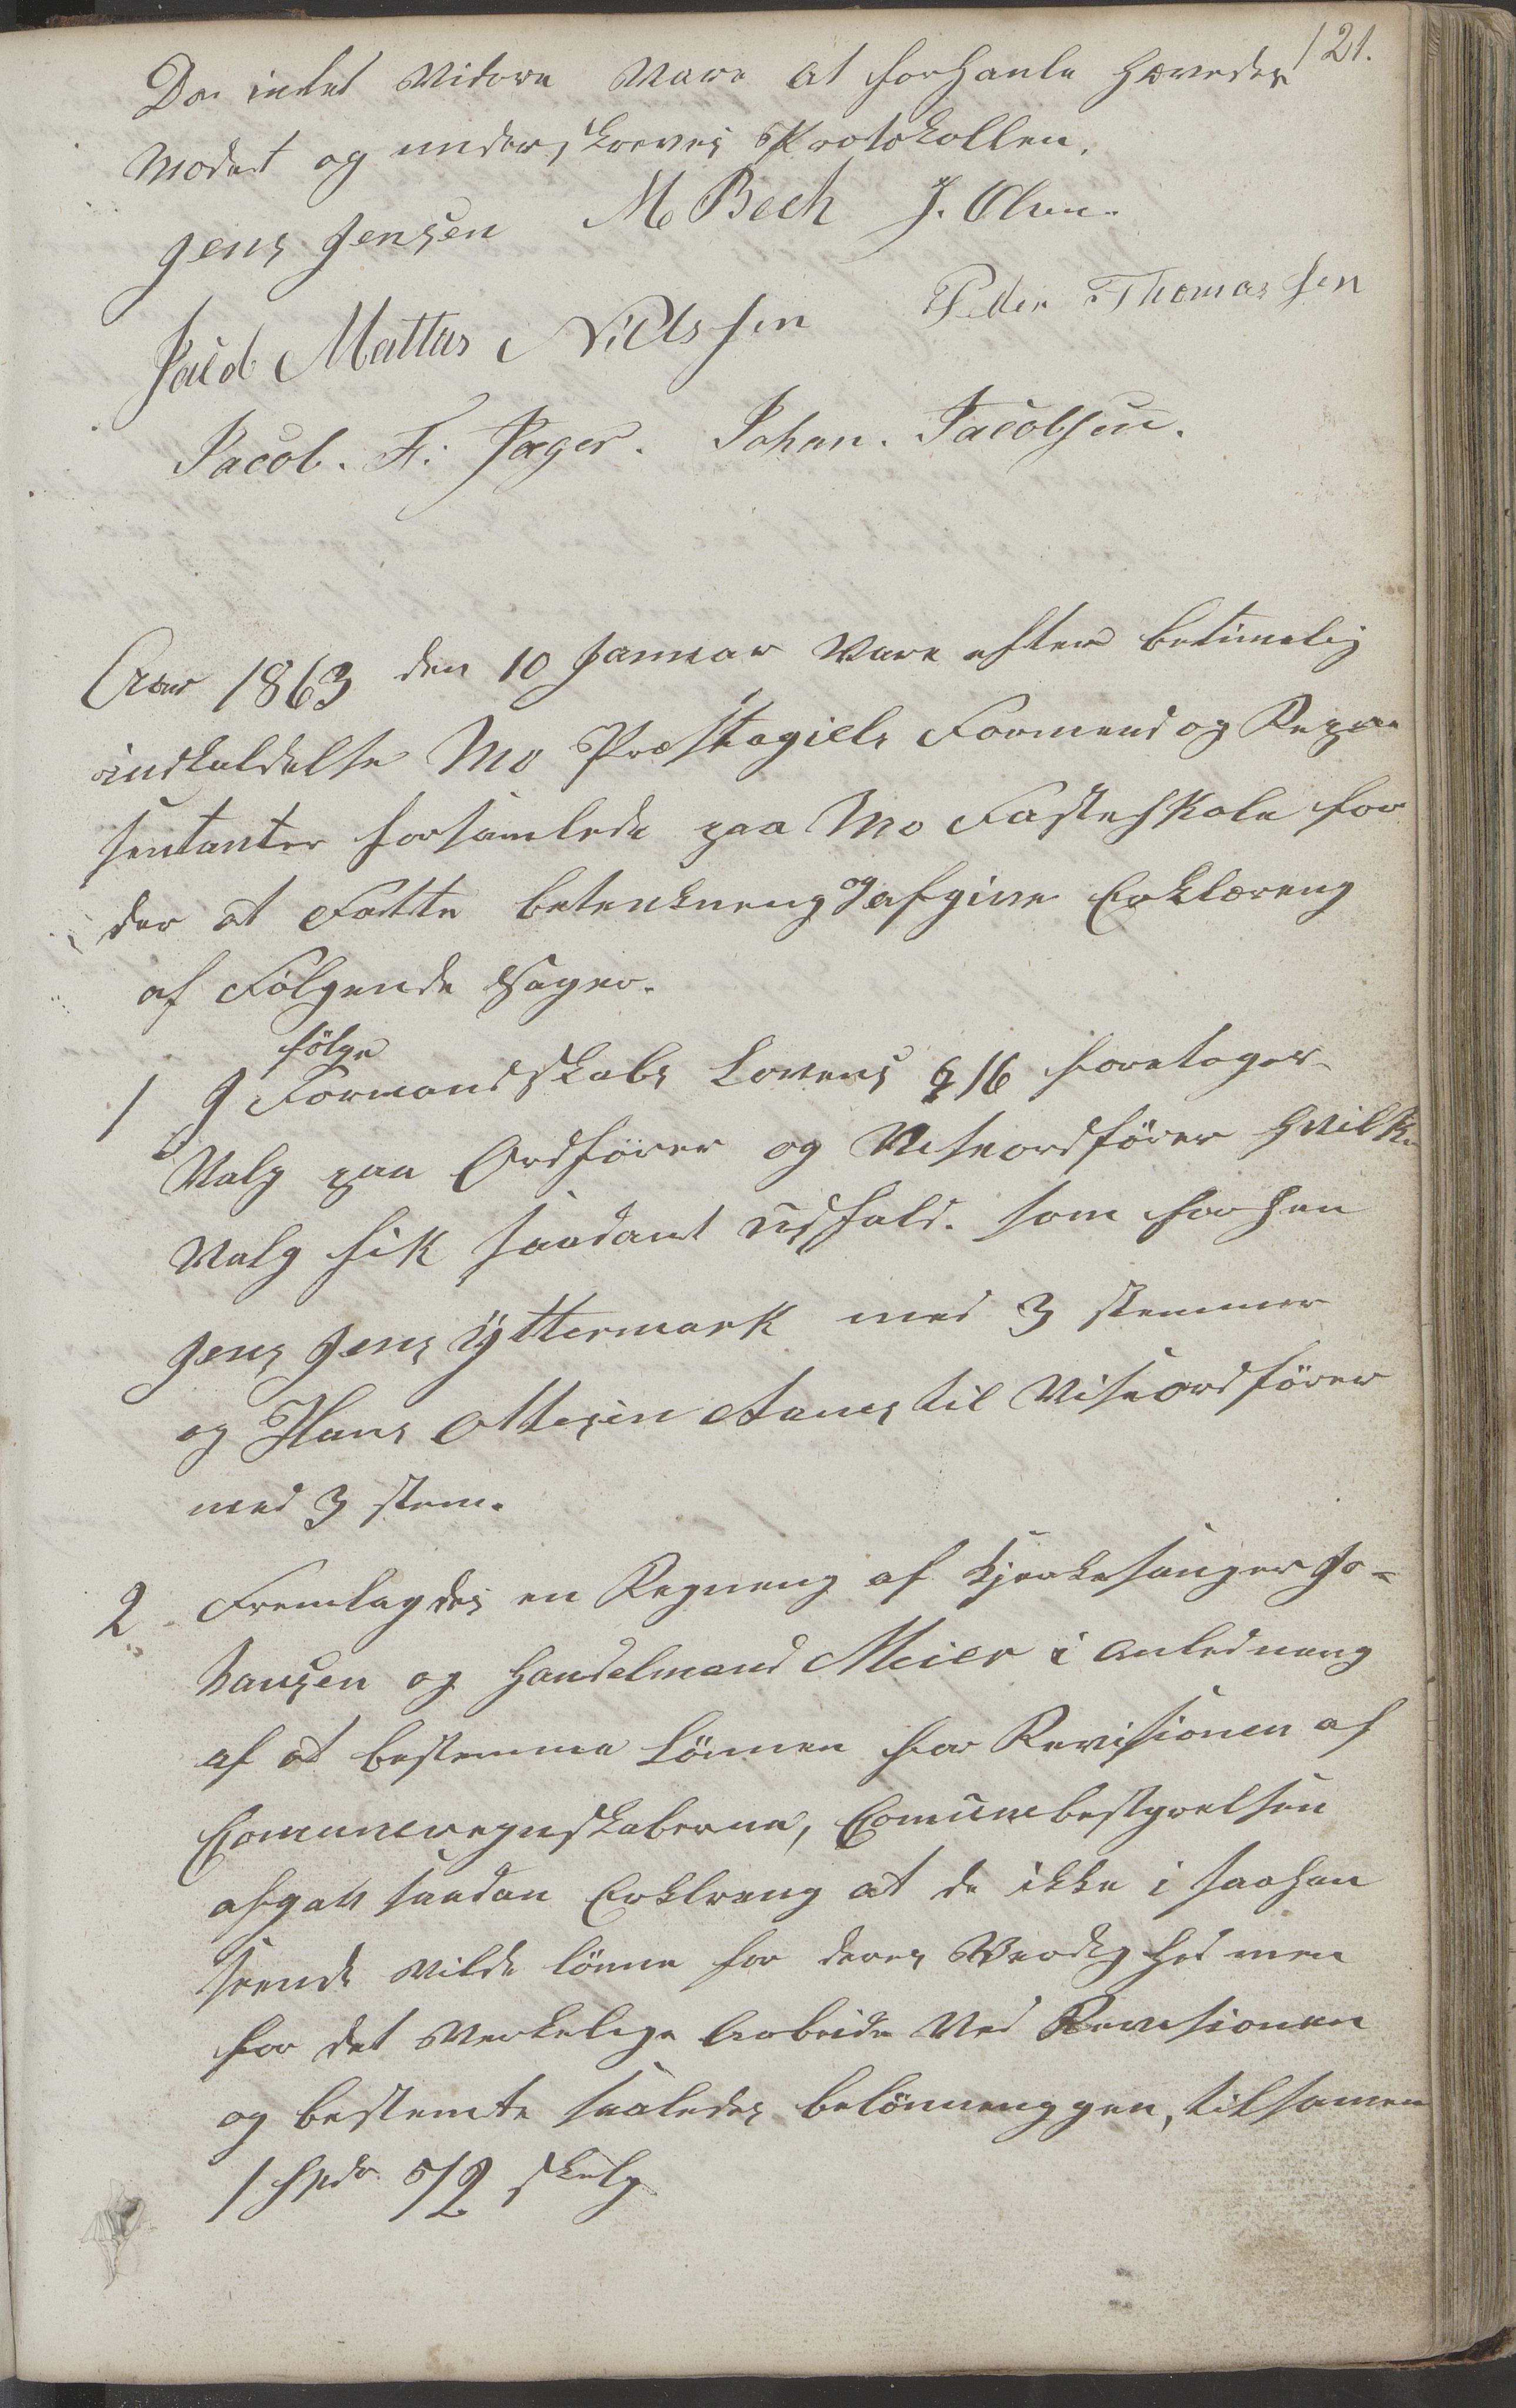 121.
Da intet Videre Vare at forhanle hævedes
Modet og underskreves Protokollen.
Jens Jensen M Bech J. Olsen.
Mattias Nielssen Peder Thomassen
Jacob. F. Jæger. Johan. Jacobsen.
Aar 1863 den 10 Januar Vare efter betimelig
indkaldelse Mo Præstegiels Formend og Repræ
sentanter forsamlede paa Mo Fasteskole for
der at Fatte betenkneng og afgive Erklæreng
af Følgende Sager.
1 I følge Formandskabs Lovens § 16 foretoges
Valg paa Ordfører og Viseordfører hvilke
Valg fik saadant Udfald. som for hen
Jens Jens Yttermark med 3 stemmer
og Hans Ottesen Aanes til Viseordfører
med 3 stem.
2 Fremlagdes en Regneng af Kjerkesanger Jo-
hansen og Handelmand Meier i anledneng
af at bestemme Lønnen for Revisionen af
Comuneregnskaberne, Comunebestyrelsen
afgav saadan Erklreng at de ikke i saahen
seende vilde lønne for deres Verdighed men
for det Verkelige Arbeide Ved Revisionen
og bestemte saaledes belønnenggen, tilsamen
1 Spdr 72 skelg